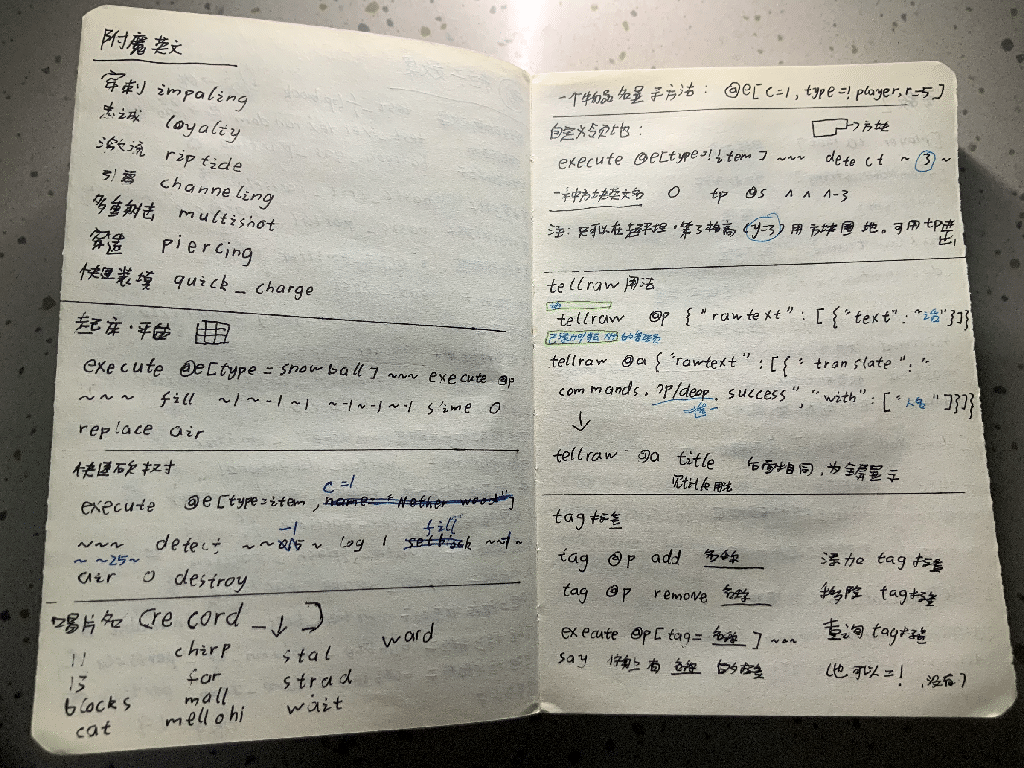 附魔英文
穿刺 impaling
忠诚 loyalty
激流 riptide
引雷 channeling
多重射击 multishot
穿透 piercing
快速装填 quick_charge
起床·平台
execute @e[type=snowball] ~~~ execute @p
~~~ fill ~1~-1~1 ~-1~-1~-1 slime 0
replace air
快速砍树
c=1
execute @e[type=item, name="Nether wood"]
-1 fill
~~~ detect ~~0.5~ log 1 setblock ~~-1~
~ ~25~
air 0 destroy
唱片名 (record_↓)
11 chirp stal ward
13 far strad
blocks mall wait
cat mellohi
一个物品名置 方法: @e[c=1, type=!player,r=5]
自定义领地:
→方块
execute @e[type=!item] ~~~ detect ~ 3 ~
一种方块英文名 0 tp @s ^ ^ ^-3
注: 只可以在超平坦·第3格高 (y=3) 用方块围地。可用tp进出!
tellraw 用法
tellraw @p {"rawtext":[{"text":"语"}]}
tellraw @a {"rawtext":[{"translate":"
commands.op/deop.success","with":["人名"]}]}
↓
tellraw @a title 与前面相同,为全屏显示
见title用法
tag 标签
tag @p add 名称 添加 tag 标签
tag @p remove 名称 移除 tag标签
execute @p[tag=名称] ~~~ 查询 tag标签
say 有 名称 的标签 (也可以=! 没有)